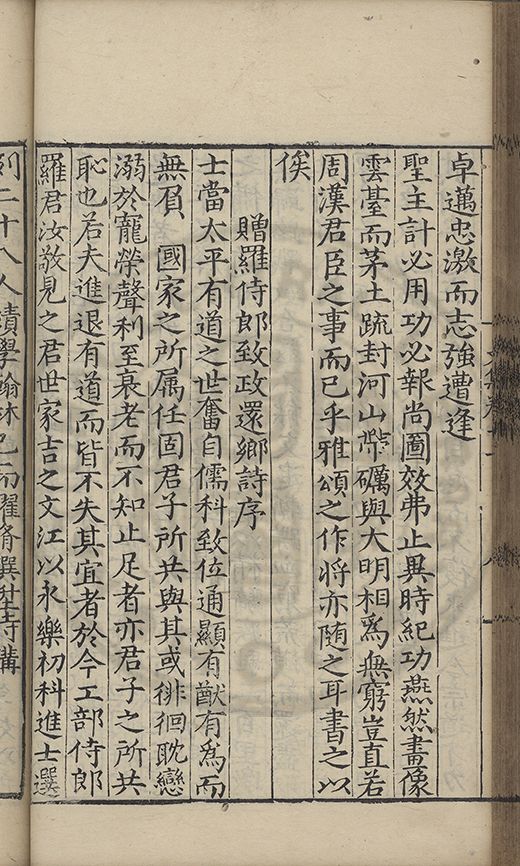 卓邁忠激而志強遭逢
聖主計必用功必報尚圖效弗止異時紀功燕然畫像
雲臺而茅土疏封河山帶礪與大明相爲無窮豈直若
周漢君臣之事而已乎雅頌之作將亦隨之耳書之以
俟
贈羅侍郎致政還鄉詩序
士當太平有道之世奮自儒科致位通顯有猷有爲而
無負國家之所属任固君子所共與其或徘徊耽戀
溺於寵榮聲利至衰老而不知止足者亦君子之所共
恥也若夫進退有道而皆不失其宜者於今工部侍郎
羅君汝敬見之君世家吉之文江以永樂初科進士選
列二十八人績學翰林已而擢脩撰陞侍講